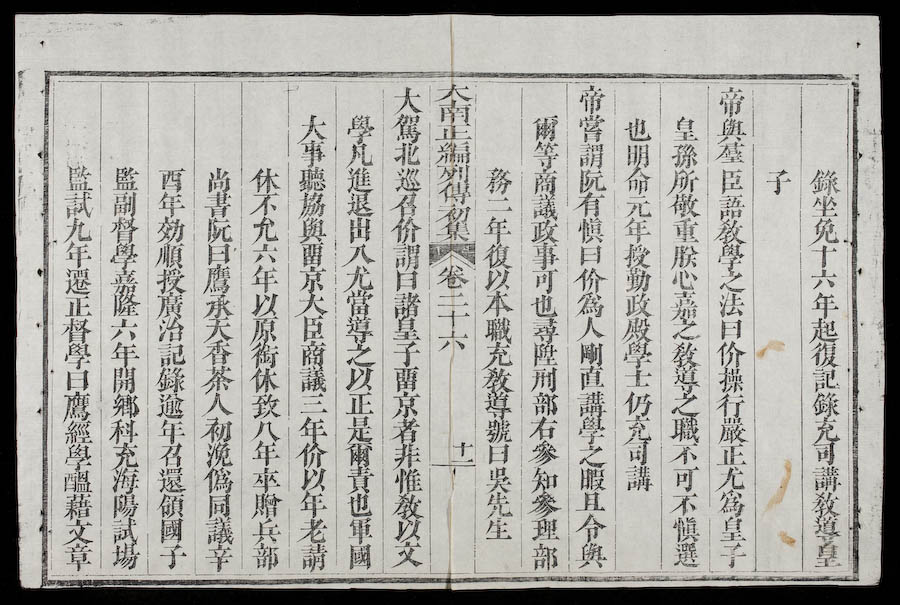 錄坐免十六年起復記錄充司講教導皇
子
帝與臺臣語敎學之法曰价操行嚴正尤爲皇子
皇孫所敬重朕心嘉之敎導之職不可不愼選
也明命元年授勤政殿學士仍充司講
帝嘗謂阮有愼曰价為人剛直講學之暇且令與
爾等商議政事可也尋陞刑部右參知參理部
務二年復以本職充敎導號曰吳先生
大南正編列傳初集 卷二十六 十一
大駕北巡召价謂曰諸皇子畱京者非惟敎以文
學凡進退出入尤當導之以正是爾責也軍國
大事聽協與畱京大臣商議三年价以年老請
休不允六年以原銜休致八年卒贈兵部
尚書阮曰鷹承天香茶人初浼偽同議辛
酉年効順授廣治記錄逾年召還領國子
監副督學嘉隆六年開鄉科充海陽試場
監試九年遷正督學曰鷹經學醞藉文章